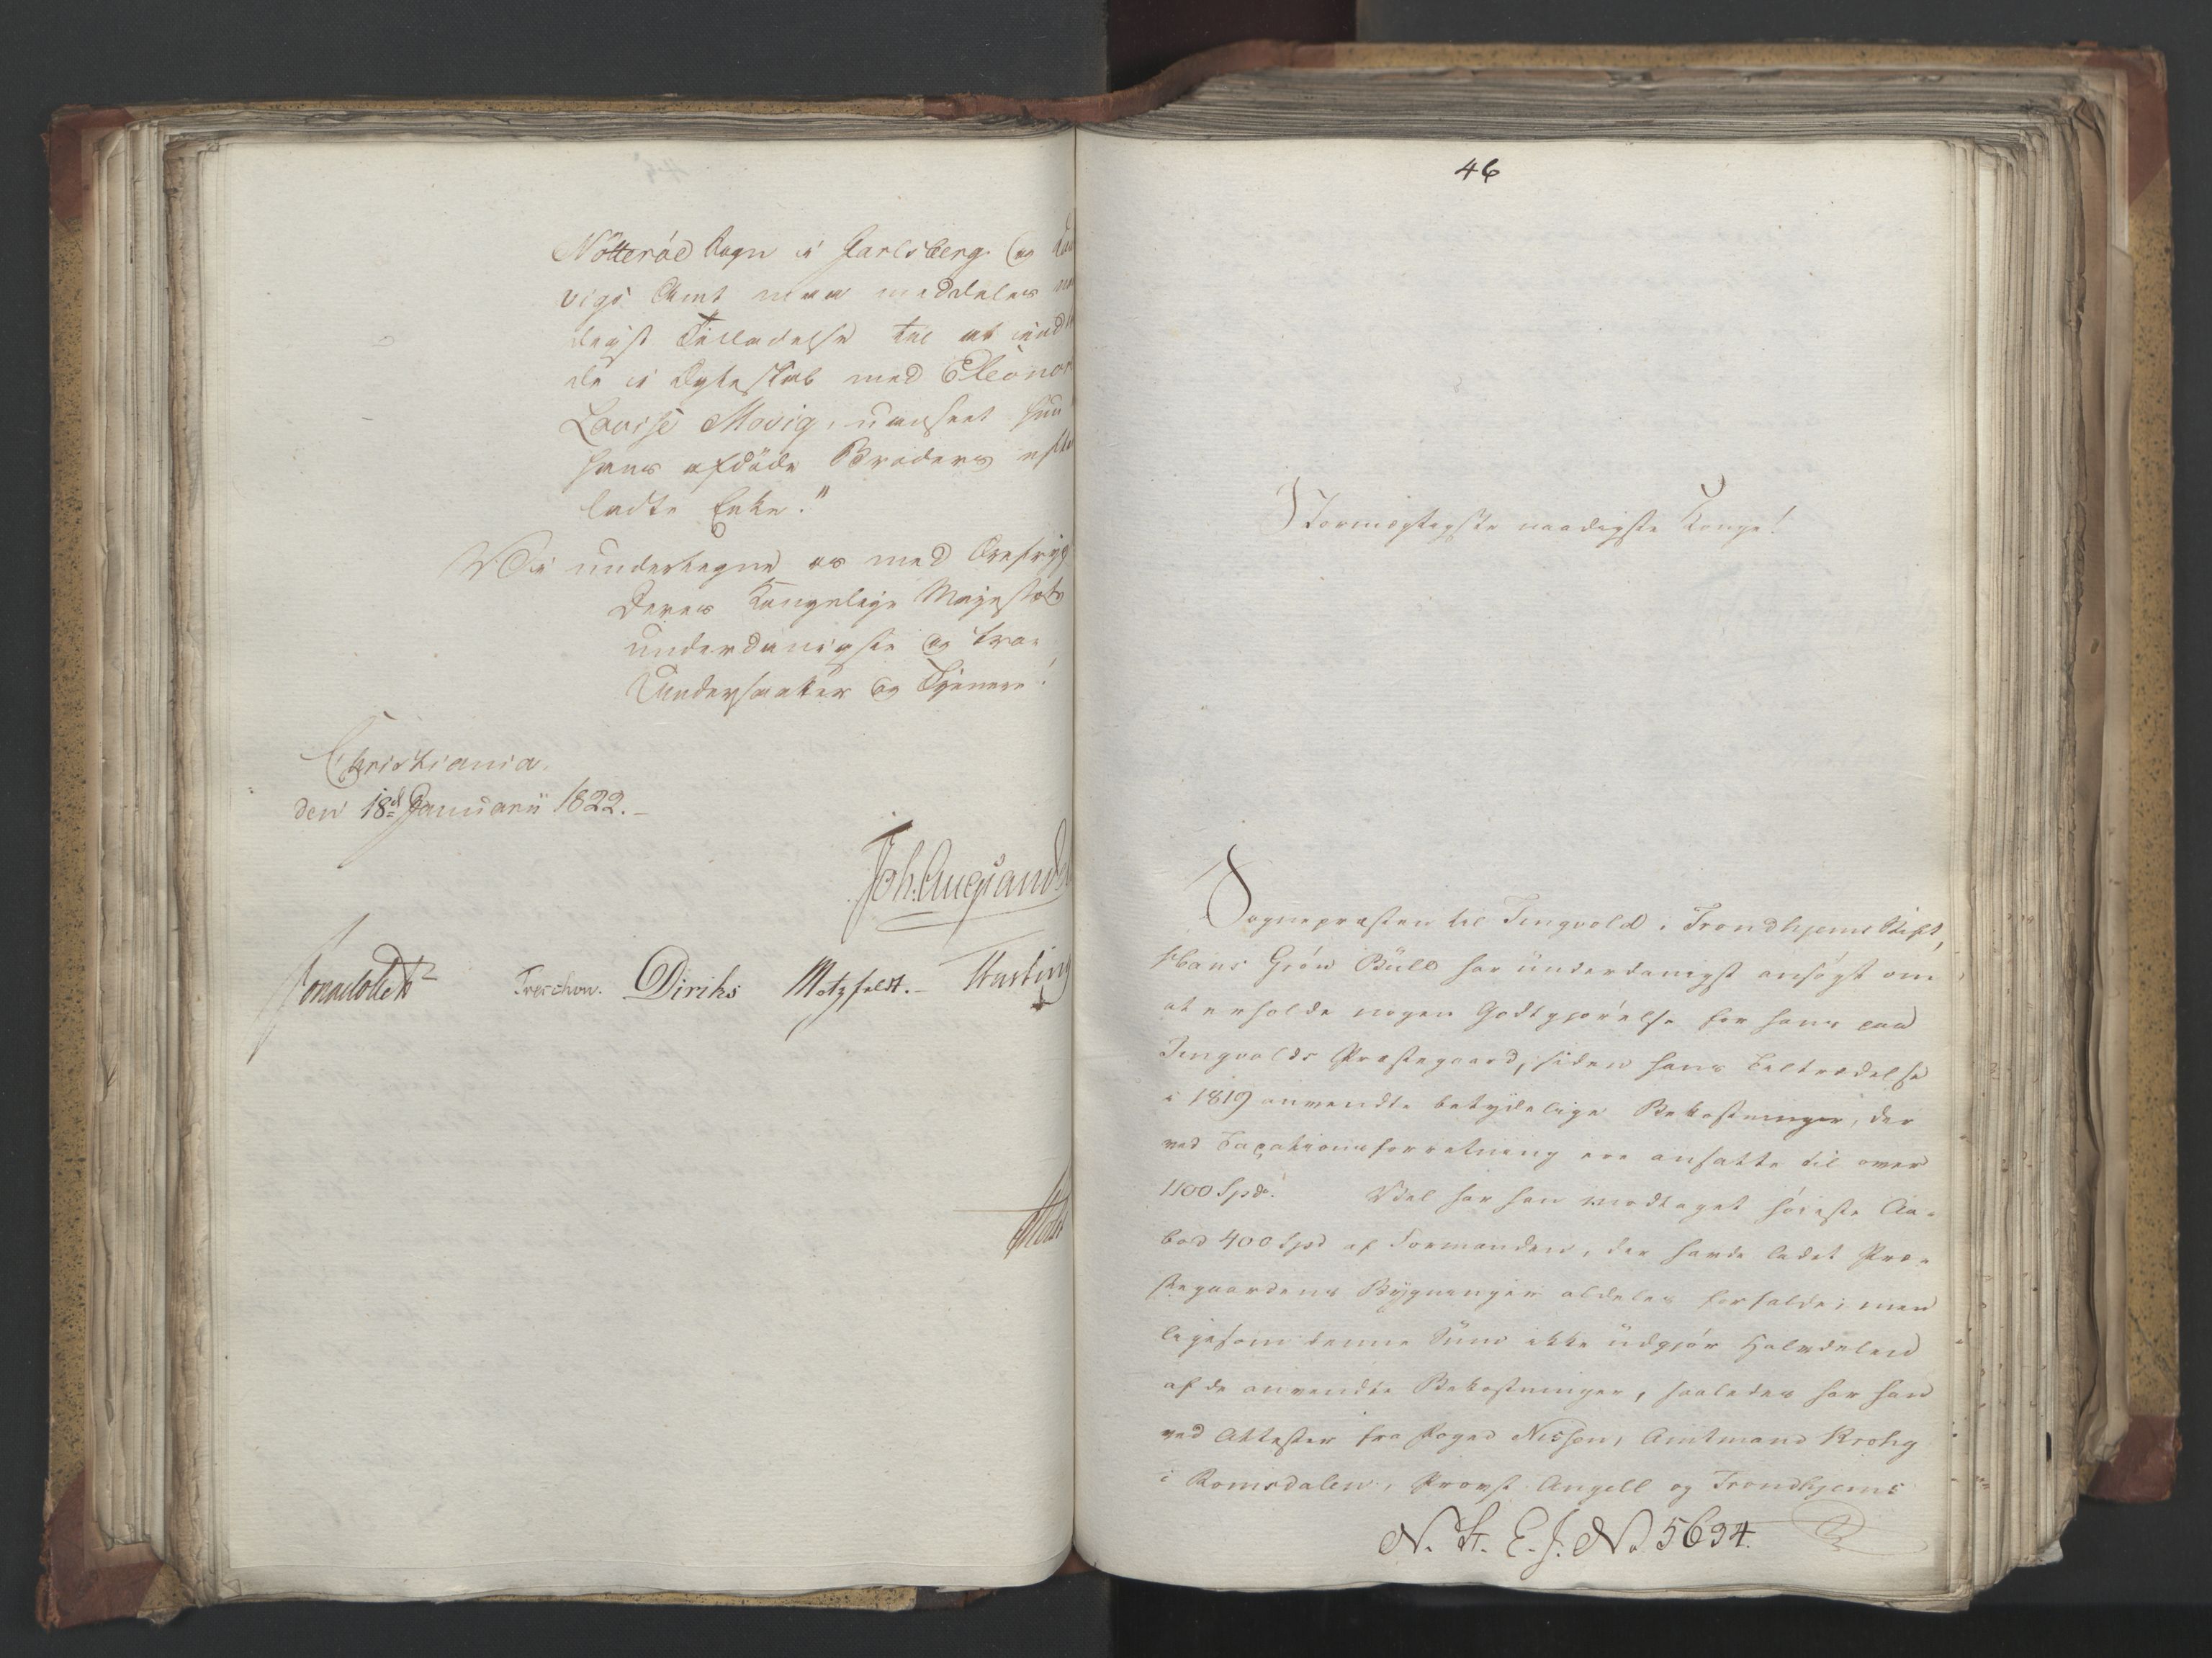 Nötteröe Sogn i Jarlsberg og
vigs Amt maa meddeles
digst Tilladelse til at indt
de i Ægteskab med Eleonor
Lovise Movig, uanseet hun
hans afdöde Broders efter
ladte Enke."
Vi undertegne os med Ærefrygt
Deres Kongelige Majestæts
underdanigste og troe
Undersaatter og Tjenere!
Christiania,
den 18de Januarii 1822.
Joh. Aug. Sandels
Sommerfeldt Treschow. Diriks Motzfeldt.
Holst
46
Stormægtigste naadigste Konge!
Sognepræsten til Tingvold i Trondhjems Stift,
Hans Grön Büll har underdanigst ansögt om
at erholde nogen Godtgjörelse for hans paa
Tingvolds Præstegaard, siden hans Tiltrædelse
i 1819 anvendte betydelige Bekostninger, der
ved Taxationsforretning ere ansatte til over
1100 Spd. Vel har han modtaget höieste Aa-
bod 400 Spd af Formanden, der havde ladet Præ-
stegaardens Bygninger aldeles forfalde; men
ligesom denne Sum ikke udgjör Halvdelen
af de anvendte Bekostninger, saaledes har han
ved Attester fra Foged Nissen, Amtmand Krohg
i Romsdalen, Provst Angell og Trondhjems
N. St. E. J. No 5694.